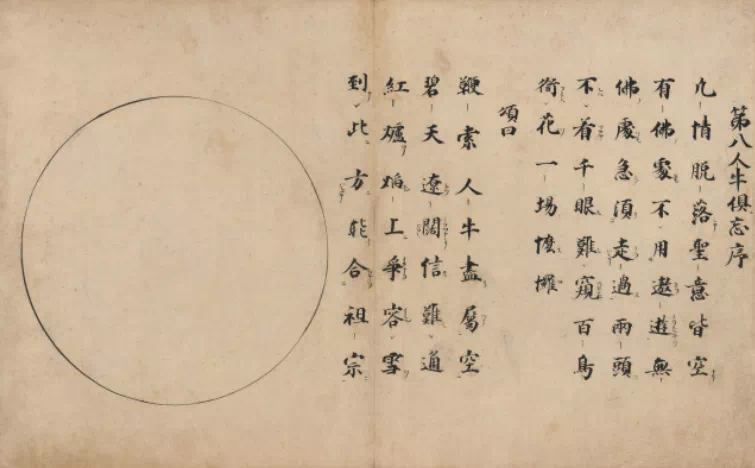 第八人牛俱忘序
凡情脱落聖意皆空
有佛處不用遨遊無
佛處急須走過兩頭
不着千眼難窺百鳥
銜花一場懡㦬
頌曰
鞭索人牛盡屬空
碧天遼闊信難通
紅爐焔上爭容雪
到此方能合祖宗